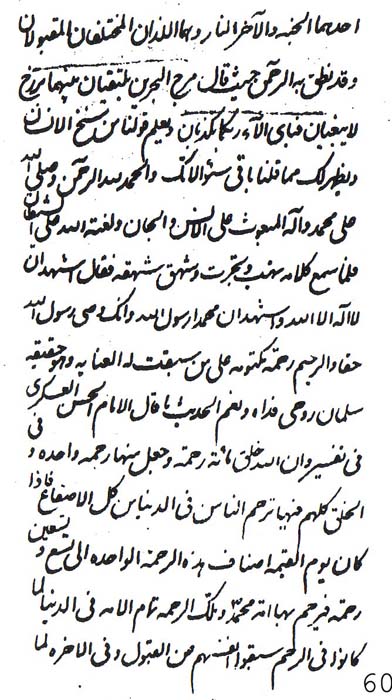 احدهما الجنة والآخر النار وهما اللذان المختلفان المقبولان
وقد نطق به الرحمن حيث قال مرج البحرين يلتقيان بينهما برزخ
لا يبغيان فبای آلآء ربكما تكذبان ويعلم قولنا من
ويظهر لك مما قلنا باقی سؤالاتك والحمد لله الرحمن وصلی الله
علی محمد وآله المبعوث علی الانس والجان ولعنة الله علی
فلما سمع كلامه وشهق شهقه فقال اشهد ان
لا اله الا الله واشهد ان محمدا رسول الله وانك وصی رسول الله
حقا والرحيم رحمة مكتوبه علی من سبقت له العنايه وهو حقيقة
سلمان روحی فداه ونعم الحديث ما قال الامام الحسن العسكری
فی تفسيره ان الله خلق مأة رحمة وجعل منها رحمه واحده فی
الخلق كلهم فبها ترحم الناس فی الدنيا من كل الاصقاع فاذا
كان يوم القيمه اضاف هذه الرحمة الواحده الی تسع وتسعين
رحمة فيرحم بها امة محمد وتلك الرحمه تمام الامه فی الدنيا لما
كانوا فی الرحم سبقوا انفسهم من القبول وفی الاخره لما
60